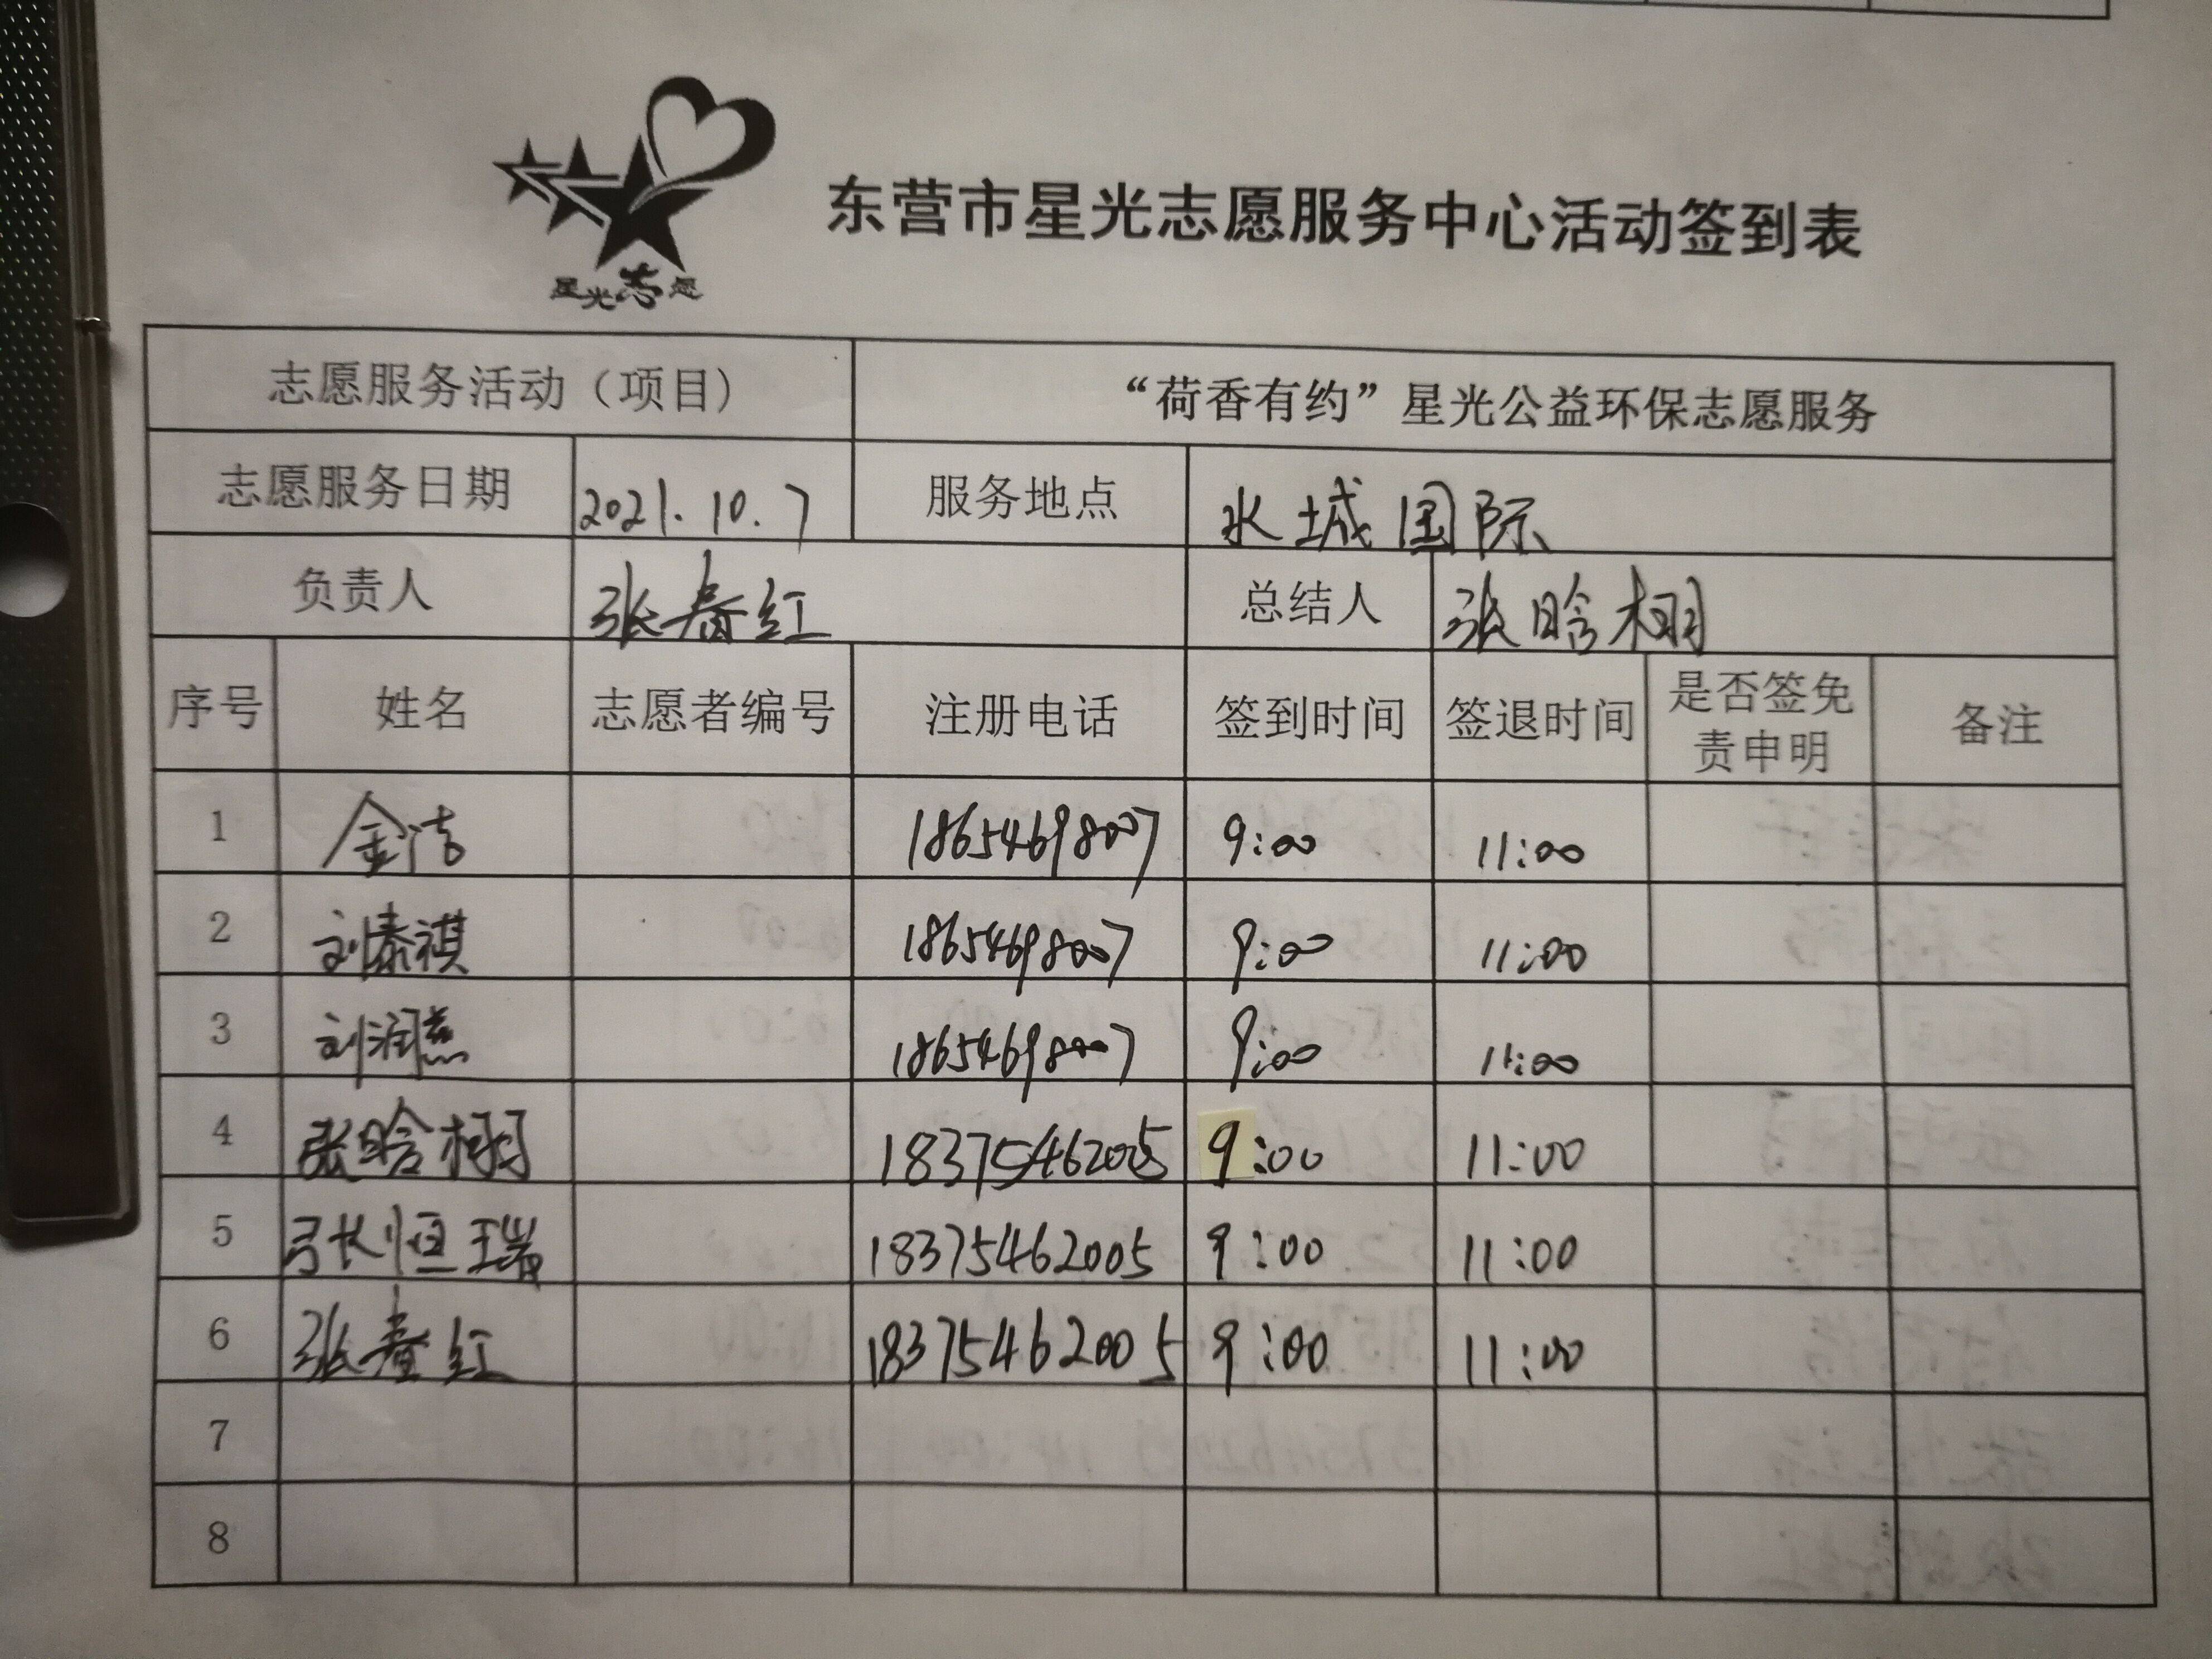 星光志愿
东营市星光志愿服务中心活动签到表
志愿服务活动（项目） “荷香有约”星光公益环保志愿服务
志愿服务日期 2021.10.7 服务地点 水城国际
负责人 张春红 总结人 张晗栩
序号 姓名 志愿者编号 注册电话 签到时间 签退时间 是否签免责申明 备注
1 金洁 18654698007 9:00 11:00
2 刘泰祺 18654698007 9:00 11:00
3 刘润燕 18654698007 9:00 11:00
4 张晗栩 18375462005 9:00 11:00
5 张恒瑞 18375462005 9:00 11:00
6 张春红 18375462005 9:00 11:00
7
8